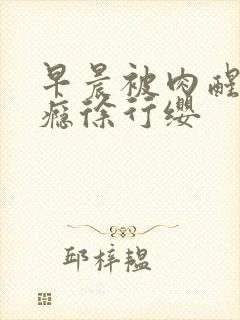 早晨被肉醒
瘾徐行缨
邱梓韫